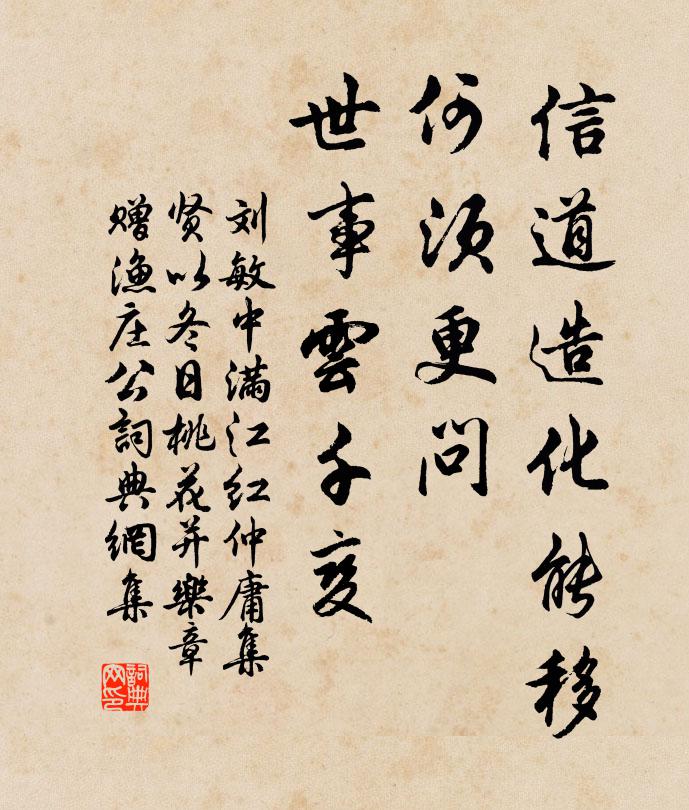 信道造化能移
何须更問
世事雲千变
刘敏中满江红仲庸集
贤以冬日桃花并樂章
赠渔庄公詞典網集
詞典
网印